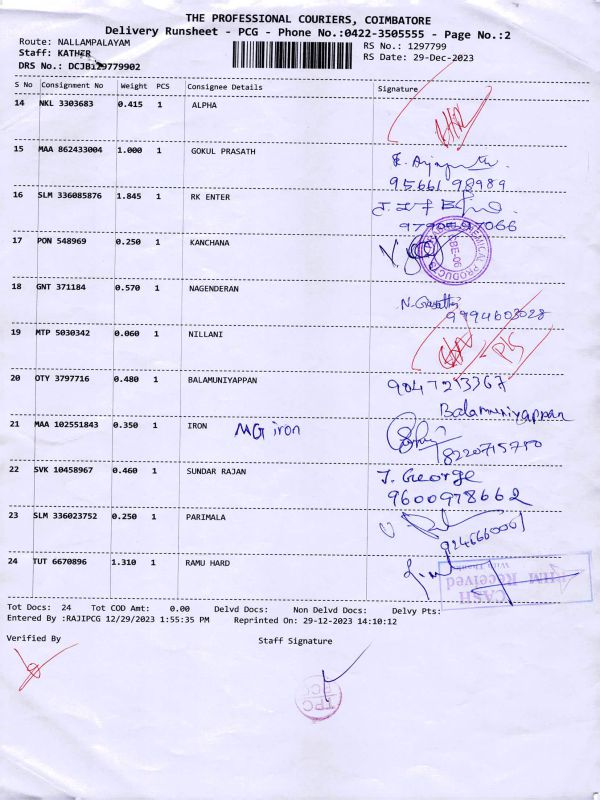 THE PROFESSIONAL COURIERS, COIMBATORE
Delivery Runsheet - PCG - Phone No.:0422-3505555 - Page No.:2
Route: NALLAMPALAYAM
RS No.: 1297799
Staff: KATHER
RS Date: 29-Dec-2023
DRS No.: DCJB129779902
S No Consignment No Weight PCS Consignee Details Signature
14 NKL 3303683 0.415 1 ALPHA
15 MAA 862433004 1.000 1 GOKUL PRASATH
95661 98989
16 SLM 336085876 1.845 1 RK ENTER
17 PON 548969 0.250 1 KANCHANA
18 GNT 371184 0.570 1 NAGENDERAN
9994603028
19 MTP 5030342 0.060 1 NILLANI
20 OTY 3797716 0.480 1 BALAMUNIYAPPAN
9047213367
Balamuniyappan
21 MAA 102551843 0.350 1 IRON MG iron
8220715750
22 SVK 10458967 0.460 1 SUNDAR RAJAN
J. George
9600978662
23 SLM 336023752 0.250 1 PARIMALA
24 TUT 6670896 1.310 1 RAMU HARD
CASH
PHM Received
With Thanks
Tot Docs: 24 Tot COD Amt: 0.00 Delvd Docs: Non Delvd Docs: Delvy Pts:
Entered By :RAJIPCG 12/29/2023 1:55:35 PM Reprinted On: 29-12-2023 14:10:12
Verified By
Staff Signature
TPC
PCG